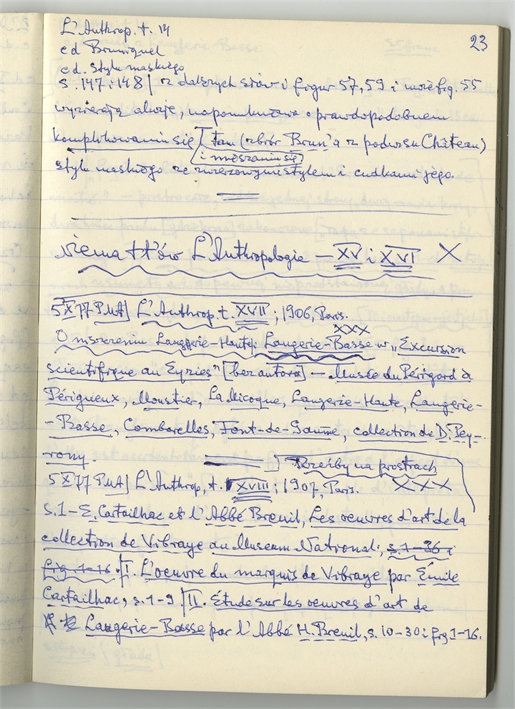 23
L'Anthrop. t. 14
cd Bruniquel
cd. styl maskiego
s. 147 i 148 | z dalszych słów i figur 57, 59 i może fig. 55
wyzierają aluzje, napomknienie o prawdopodobnem
komplikowaniu się [tam (zbiór Brun'a z podwsu Château)
[i mieszaniu się]
stylu maskiego ze zwierzowym stylem i cudkami jego.
niema ttów L'Anthropologie – XV i XVI X
5 X 77 PMA| L'Anthrop. t. XVII; 1906, Paris.
XXX
O Laugerie-Haute, Laugerie-Basse w „Excursion
scientifique au Eyzies" [bez autora] – Musée du Périgord à
Périgueux, Moustier, La Micoque, Laugerie-Haute, Laugerie-
-Basse, Combarelles, Font-de-Gaume, collection de D. Pey-
rony.
Rzeźby na prostrach
5 X 77 PMA| L'Anthrop. t. XVIII; 1907, Paris. XXX
s. 1 – E. Cartailhac et l'Abbé Breuil, Les oeuvres d'art de la
collection de Vibraye au Museum National, s. 1-36 i
fig. 1-16. I. L'oeuvre du marquis de Vibraye par Émile
Cartailhac, s. 1-9 / II. Étude sur les oeuvres d'art de
Laugerie-Basse par l'Abbé H. Breuil, s. 10-30 i fig 1-16.